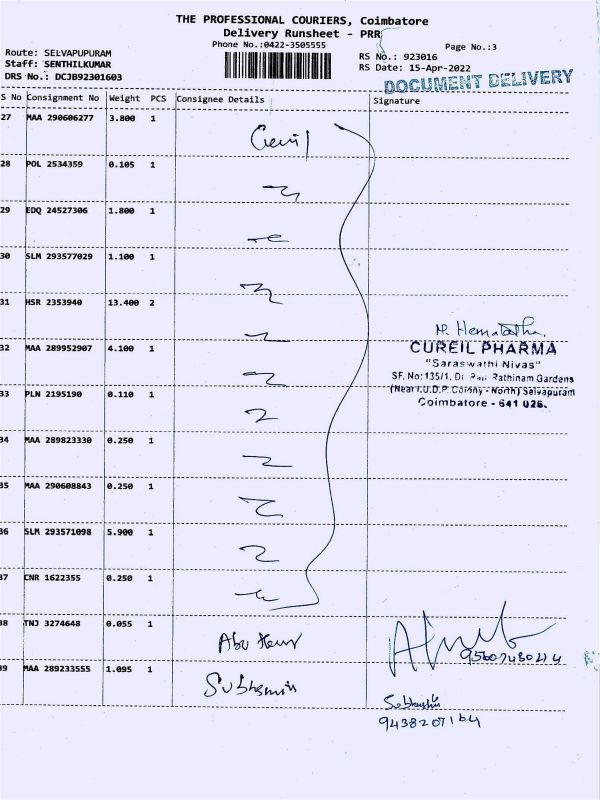 THE PROFESSIONAL COURIERS, Coimbatore
Delivery Runsheet - PRR
Phone No.:0422-3505555
Page No.:3
Route: SELVAPUPURAM
RS No.: 923016
Staff: SENTHILKUMAR
RS Date: 15-Apr-2022
DRS No.: DCJB92301603
DOCUMENT DELIVERY
S No Consignment No Weight PCS Consignee Details Signature
27 MAA 290606277 3.800 1
28 POL 2534359 0.105 1
29 EDQ 24527306 1.800 1
30 SLM 293577029 1.100 1
31 HSR 2353940 13.400 2
32 MAA 289952907 4.100 1
CUREIL PHARMA
"Saraswathi Nivas"
SF. No: 135/1, Rathinam Gardens
(Near I.U.D.P. Colony - North) Selvapuram
Coimbatore - 641 026.
33 PLN 2195190 0.110 1
34 MAA 289823330 0.250 1
35 MAA 290608843 0.250 1
36 SLM 293571098 5.900 1
37 CNR 1622355 0.250 1
38 TNJ 3274648 0.055 1
Abu
39 MAA 289233555 1.095 1
9438207164